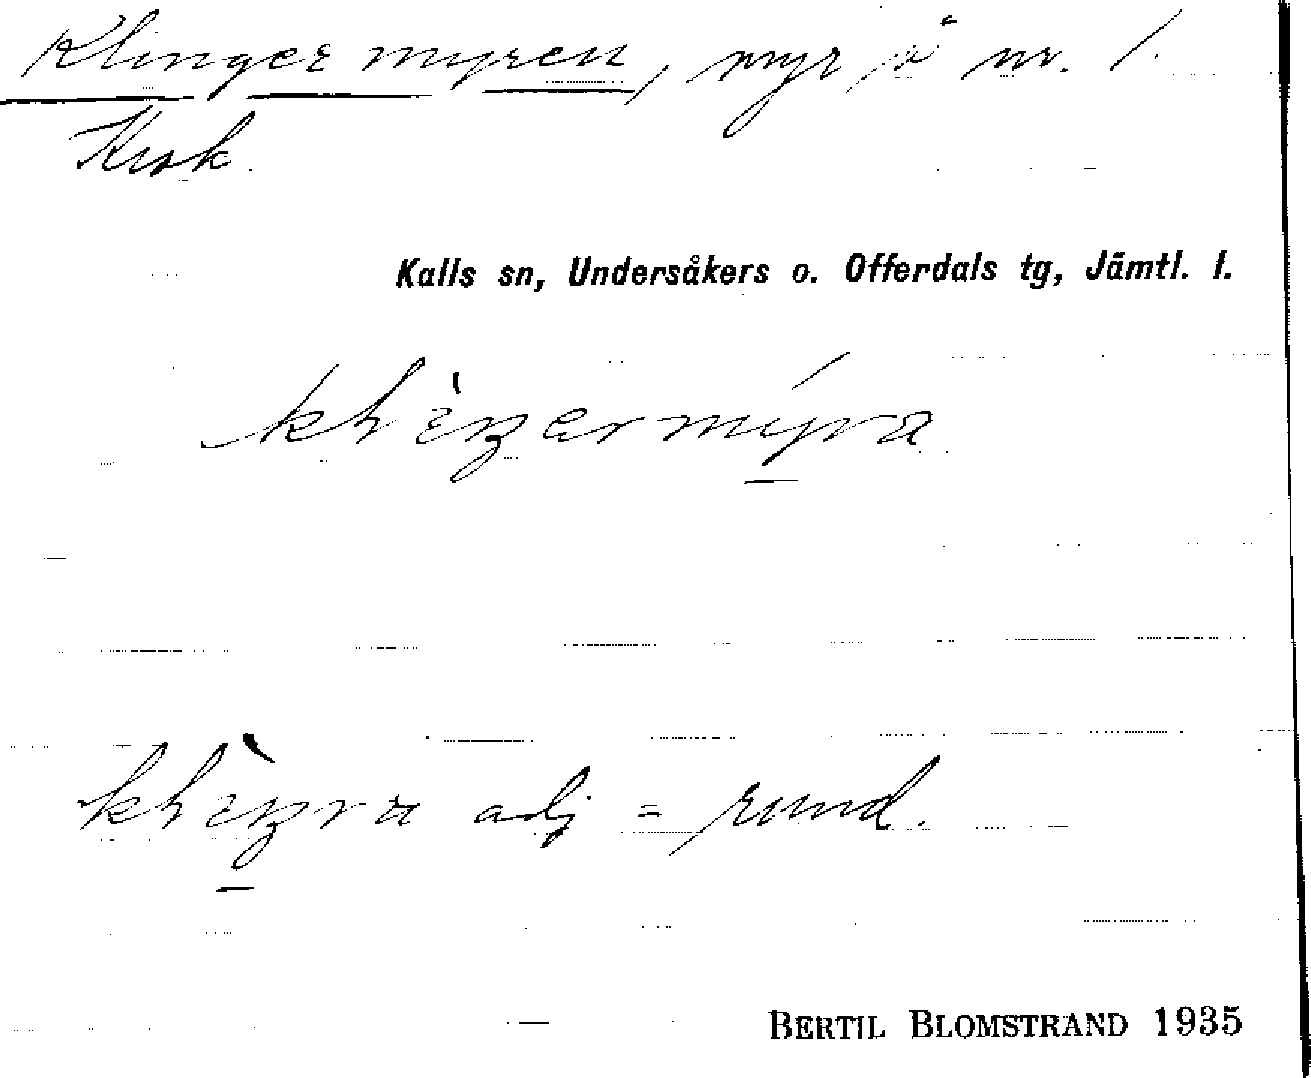 Klingermyren, myr på nr. 1.
Krok.
Kalls sn, Undersåkers o. Offerdals tg, Jämtl. l.
adj = rund.
BERTIL BLOMSTRAND 1935